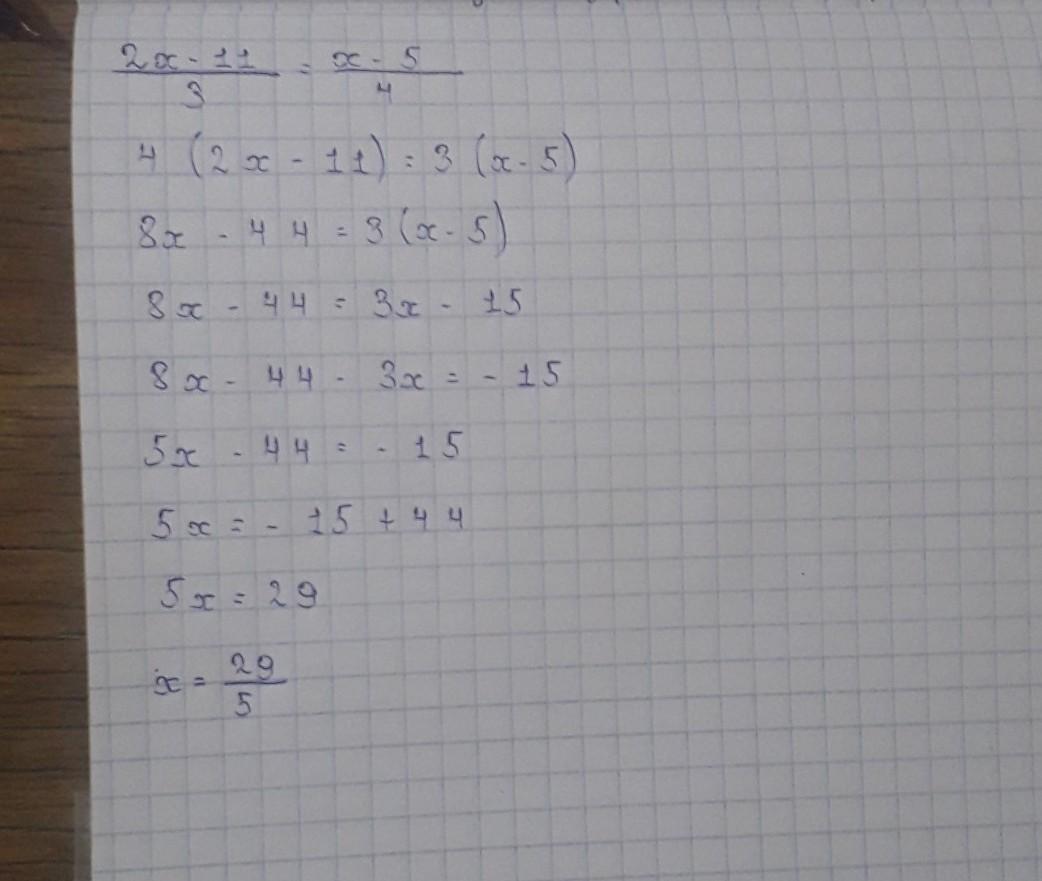 2x - 11 / 3 = x - 5 / 4
4 (2x - 11) = 3 (x - 5)
8x - 44 = 3(x - 5)
8x - 44 = 3x - 15
8x - 44 - 3x = - 15
5x - 44 = - 15
5x = - 15 + 44
5x = 29
x = 29 / 5